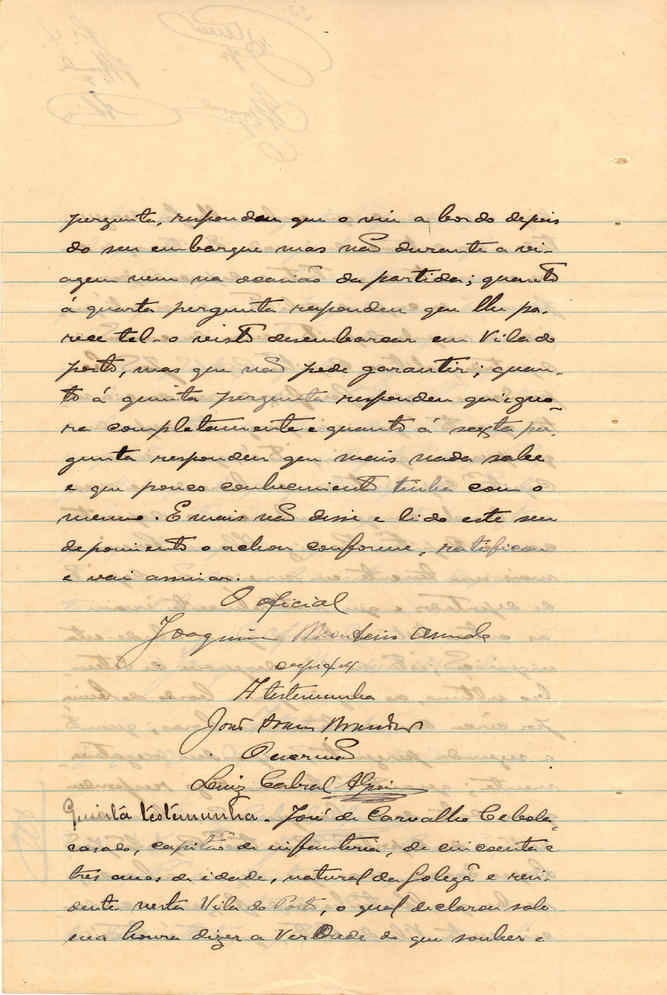 pergunta, respondeu que o viu a bordo depois
do seu embarque mas não durante a vi-
agem nem na ocasião da partida; quanto
á quarta pergunta respondeu que lhe pa-
rece tel-o visto desembarcar em Vila do
porto, mas que não pode garantir; quan-
to á quinta pergunta respondeu que igno-
ra completamente e quanto á sexta per-
gunta respondeu que mais nada sabe
e que pouco conhecimento tinha com o
mesmo. E mais não disse e lido este seu
depoimento o achou conforme, ratificou
e vai assinar.
O oficial
Joaquim Monteiro
A testemunha
José
O escrivão
Luiz Cabral
Quinta testemunha. José de Carvalho Cebola,
casado, capitão de infanteria, de cincoenta e
três anos de idade, natural da Golegã e resi-
dente nesta Vila do Porto, o qual declarou sob
sua honra dizer a Verdade do que souber e